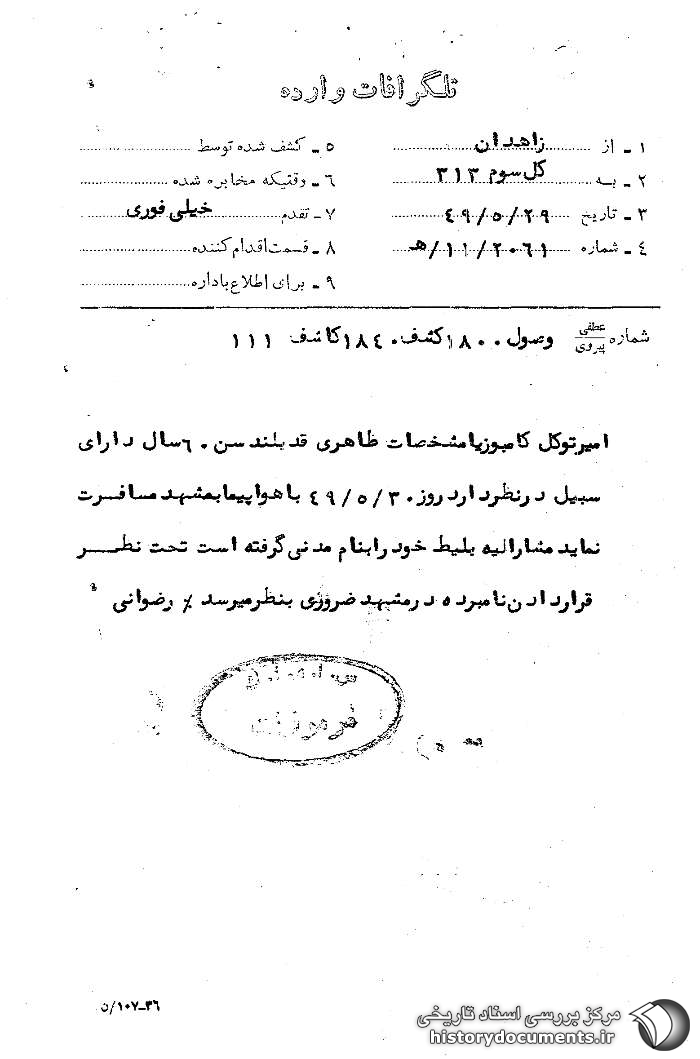 تلگرافات وارده
۱ ـ از زاهدان
۲ ـ به کل سوم ۳۱۳
۳ ـ تاریخ ۴۹/۵/۲۹
۴ ـ شماره ۲۰۶۱/۱۱/هـ
۵ ـ کشف شده توسط
۶ ـ وقتیکه مخابره شده
۷ ـ تقدم خیلی فوری
۸ ـ قسمت اقدام کننده
۹ ـ برای اطلاع باداره
شماره عطفی
پیروی
وصول ۱۸۰۰ کشف ۱۸۴۰ کاشف ۱۱۱
امیرتوکل کامبوزیا مشخصات ظاهری قد بلند سن ۶۰ سال دارای
سبیل درنظر دارد روز ۴۹/۵/۳۰ با هواپیما بمشهد مسافرت
نماید مشارالیه بلیط خود را بنام مدنی گرفته است تحت نظر
قراردادن نامبرده درمشهد ضروری بنظر میرسد ٪ رضوانی
۳۶-۱۰۷/ن
مرکز بررسی اسناد تاریخی
historydocuments.ir